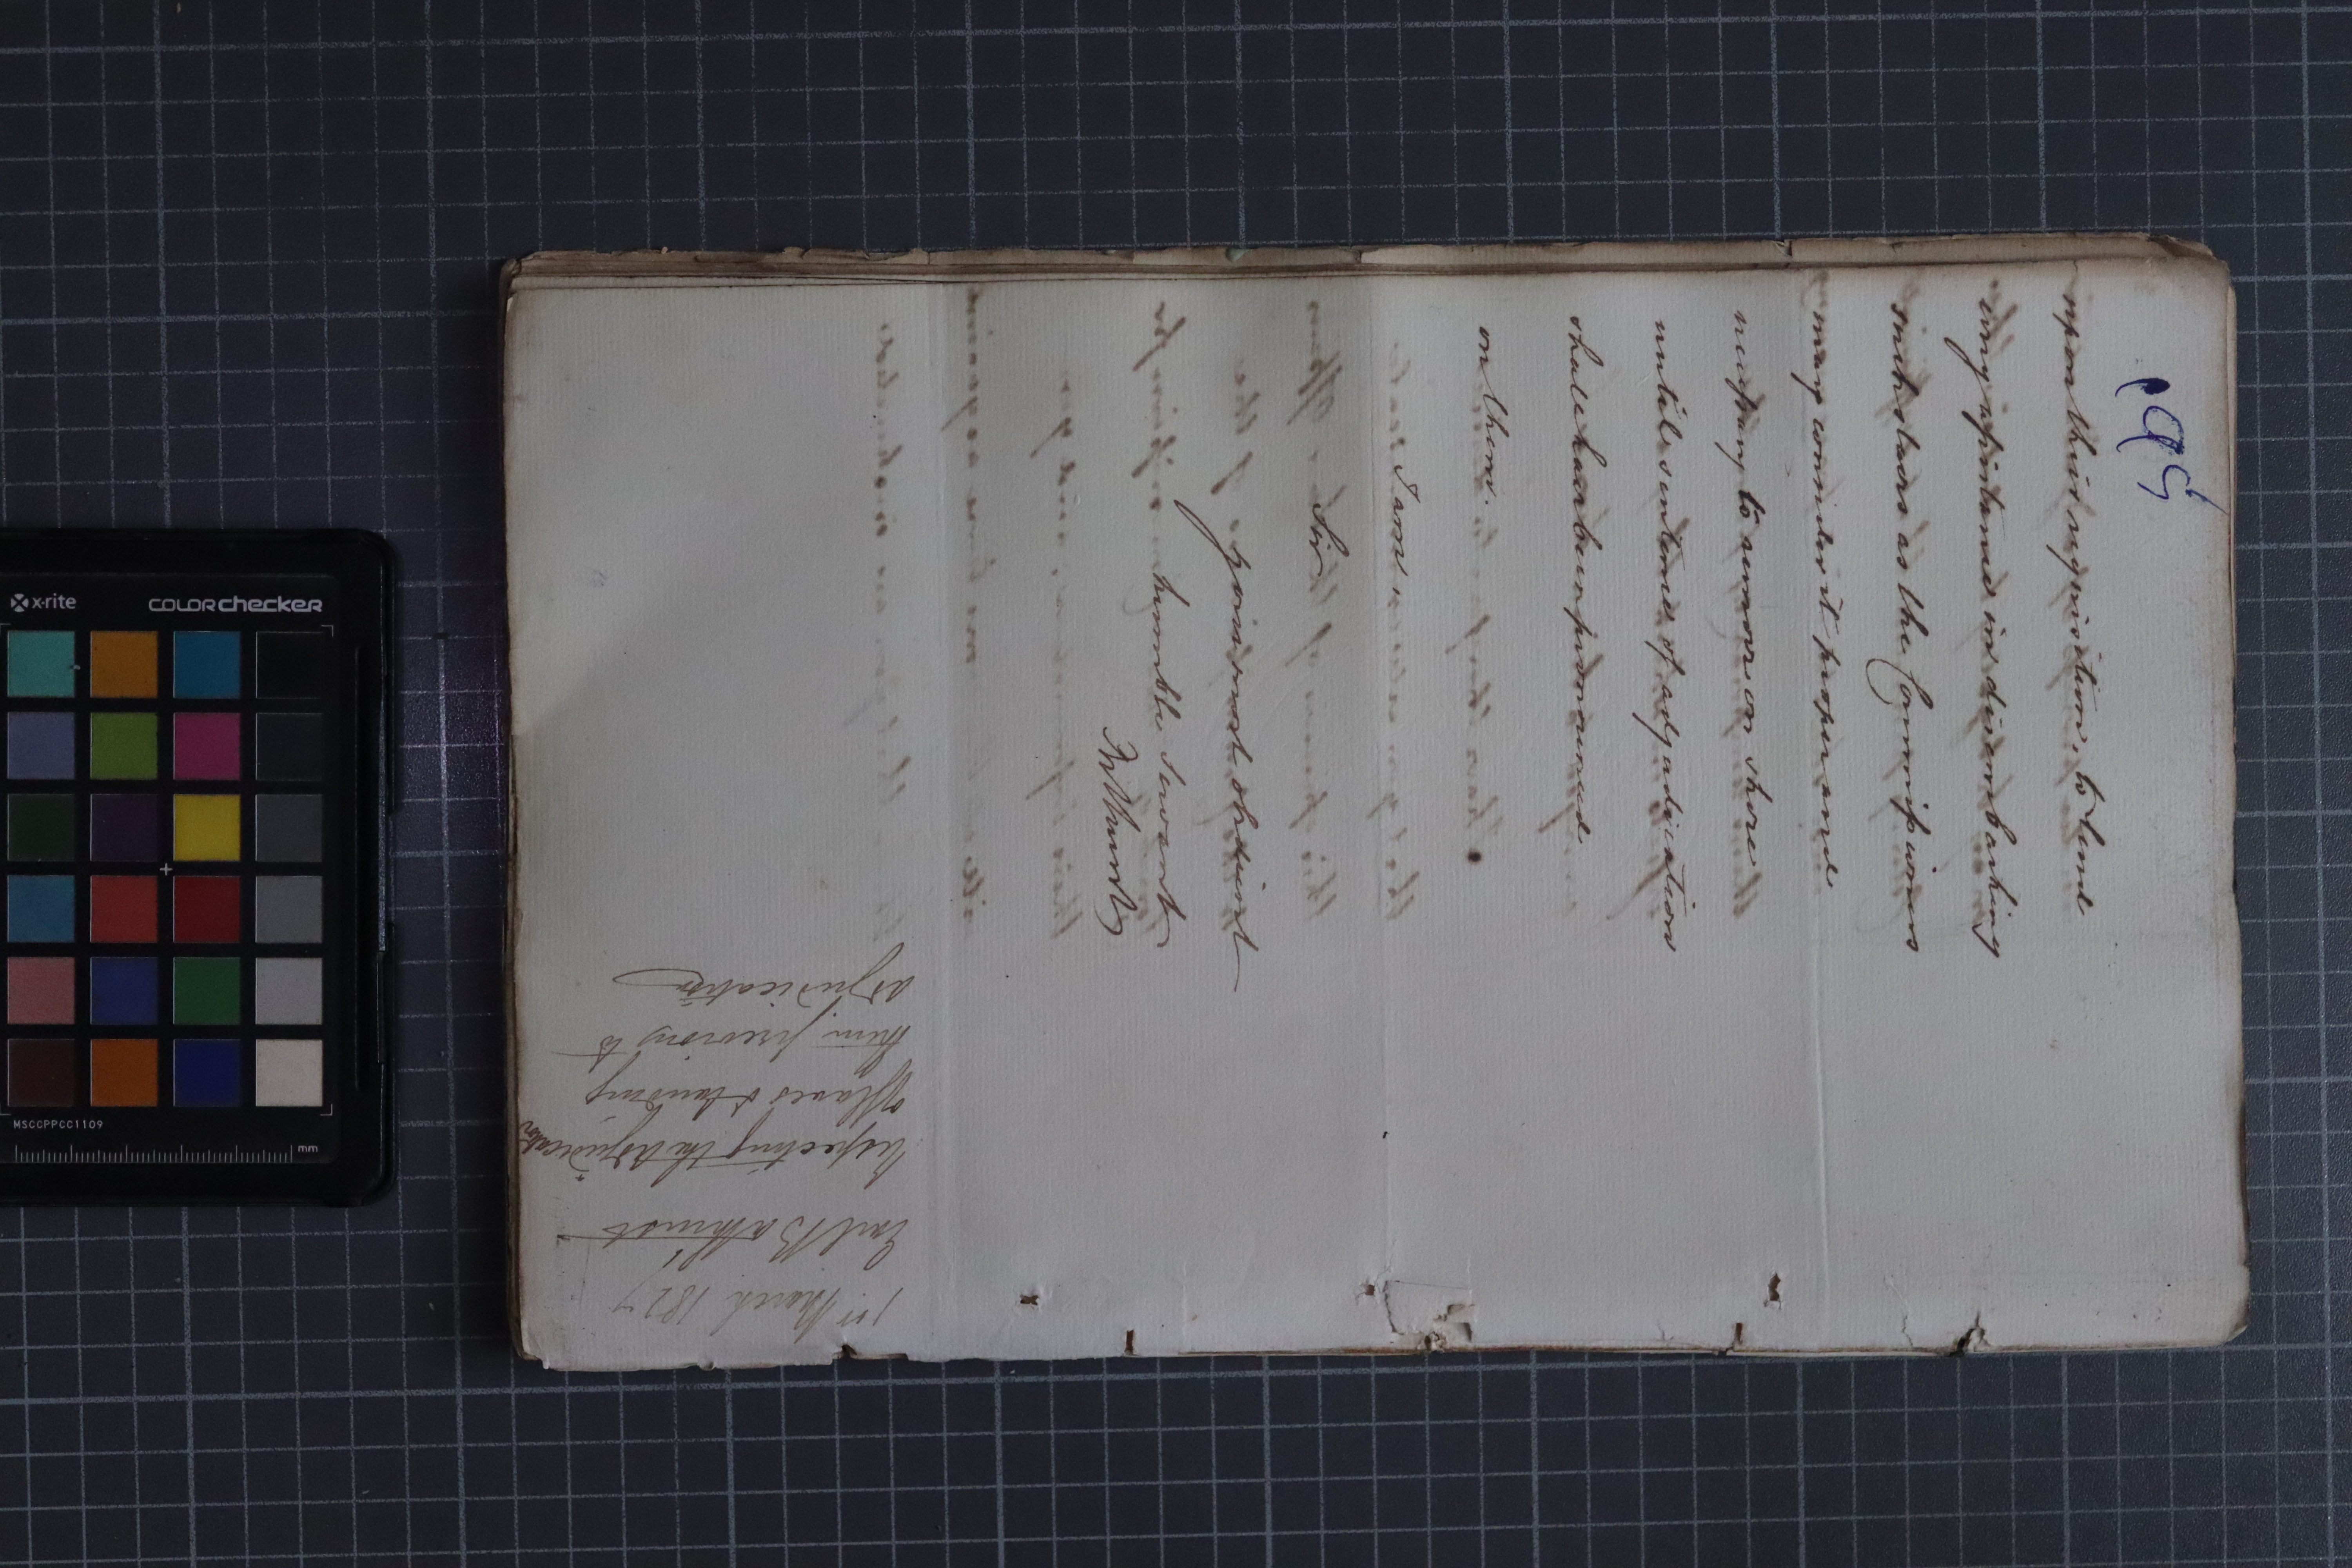 upon their requisition, to lend
any assistance in disembarking
such slaves as the Commissioners
may consider it proper and
necessary to remove on shore
until sentence of adjudication
shall have been pronounced
on them.
I am,
Sir
your most obedient
humble Servant
Bathurst
1st March 1827
Earl Bathurst
Respecting the Adjudication
of Slaves & landing
them previous to
adjudication
x-rite
colorchecker
MSCCPPCC1109
mm